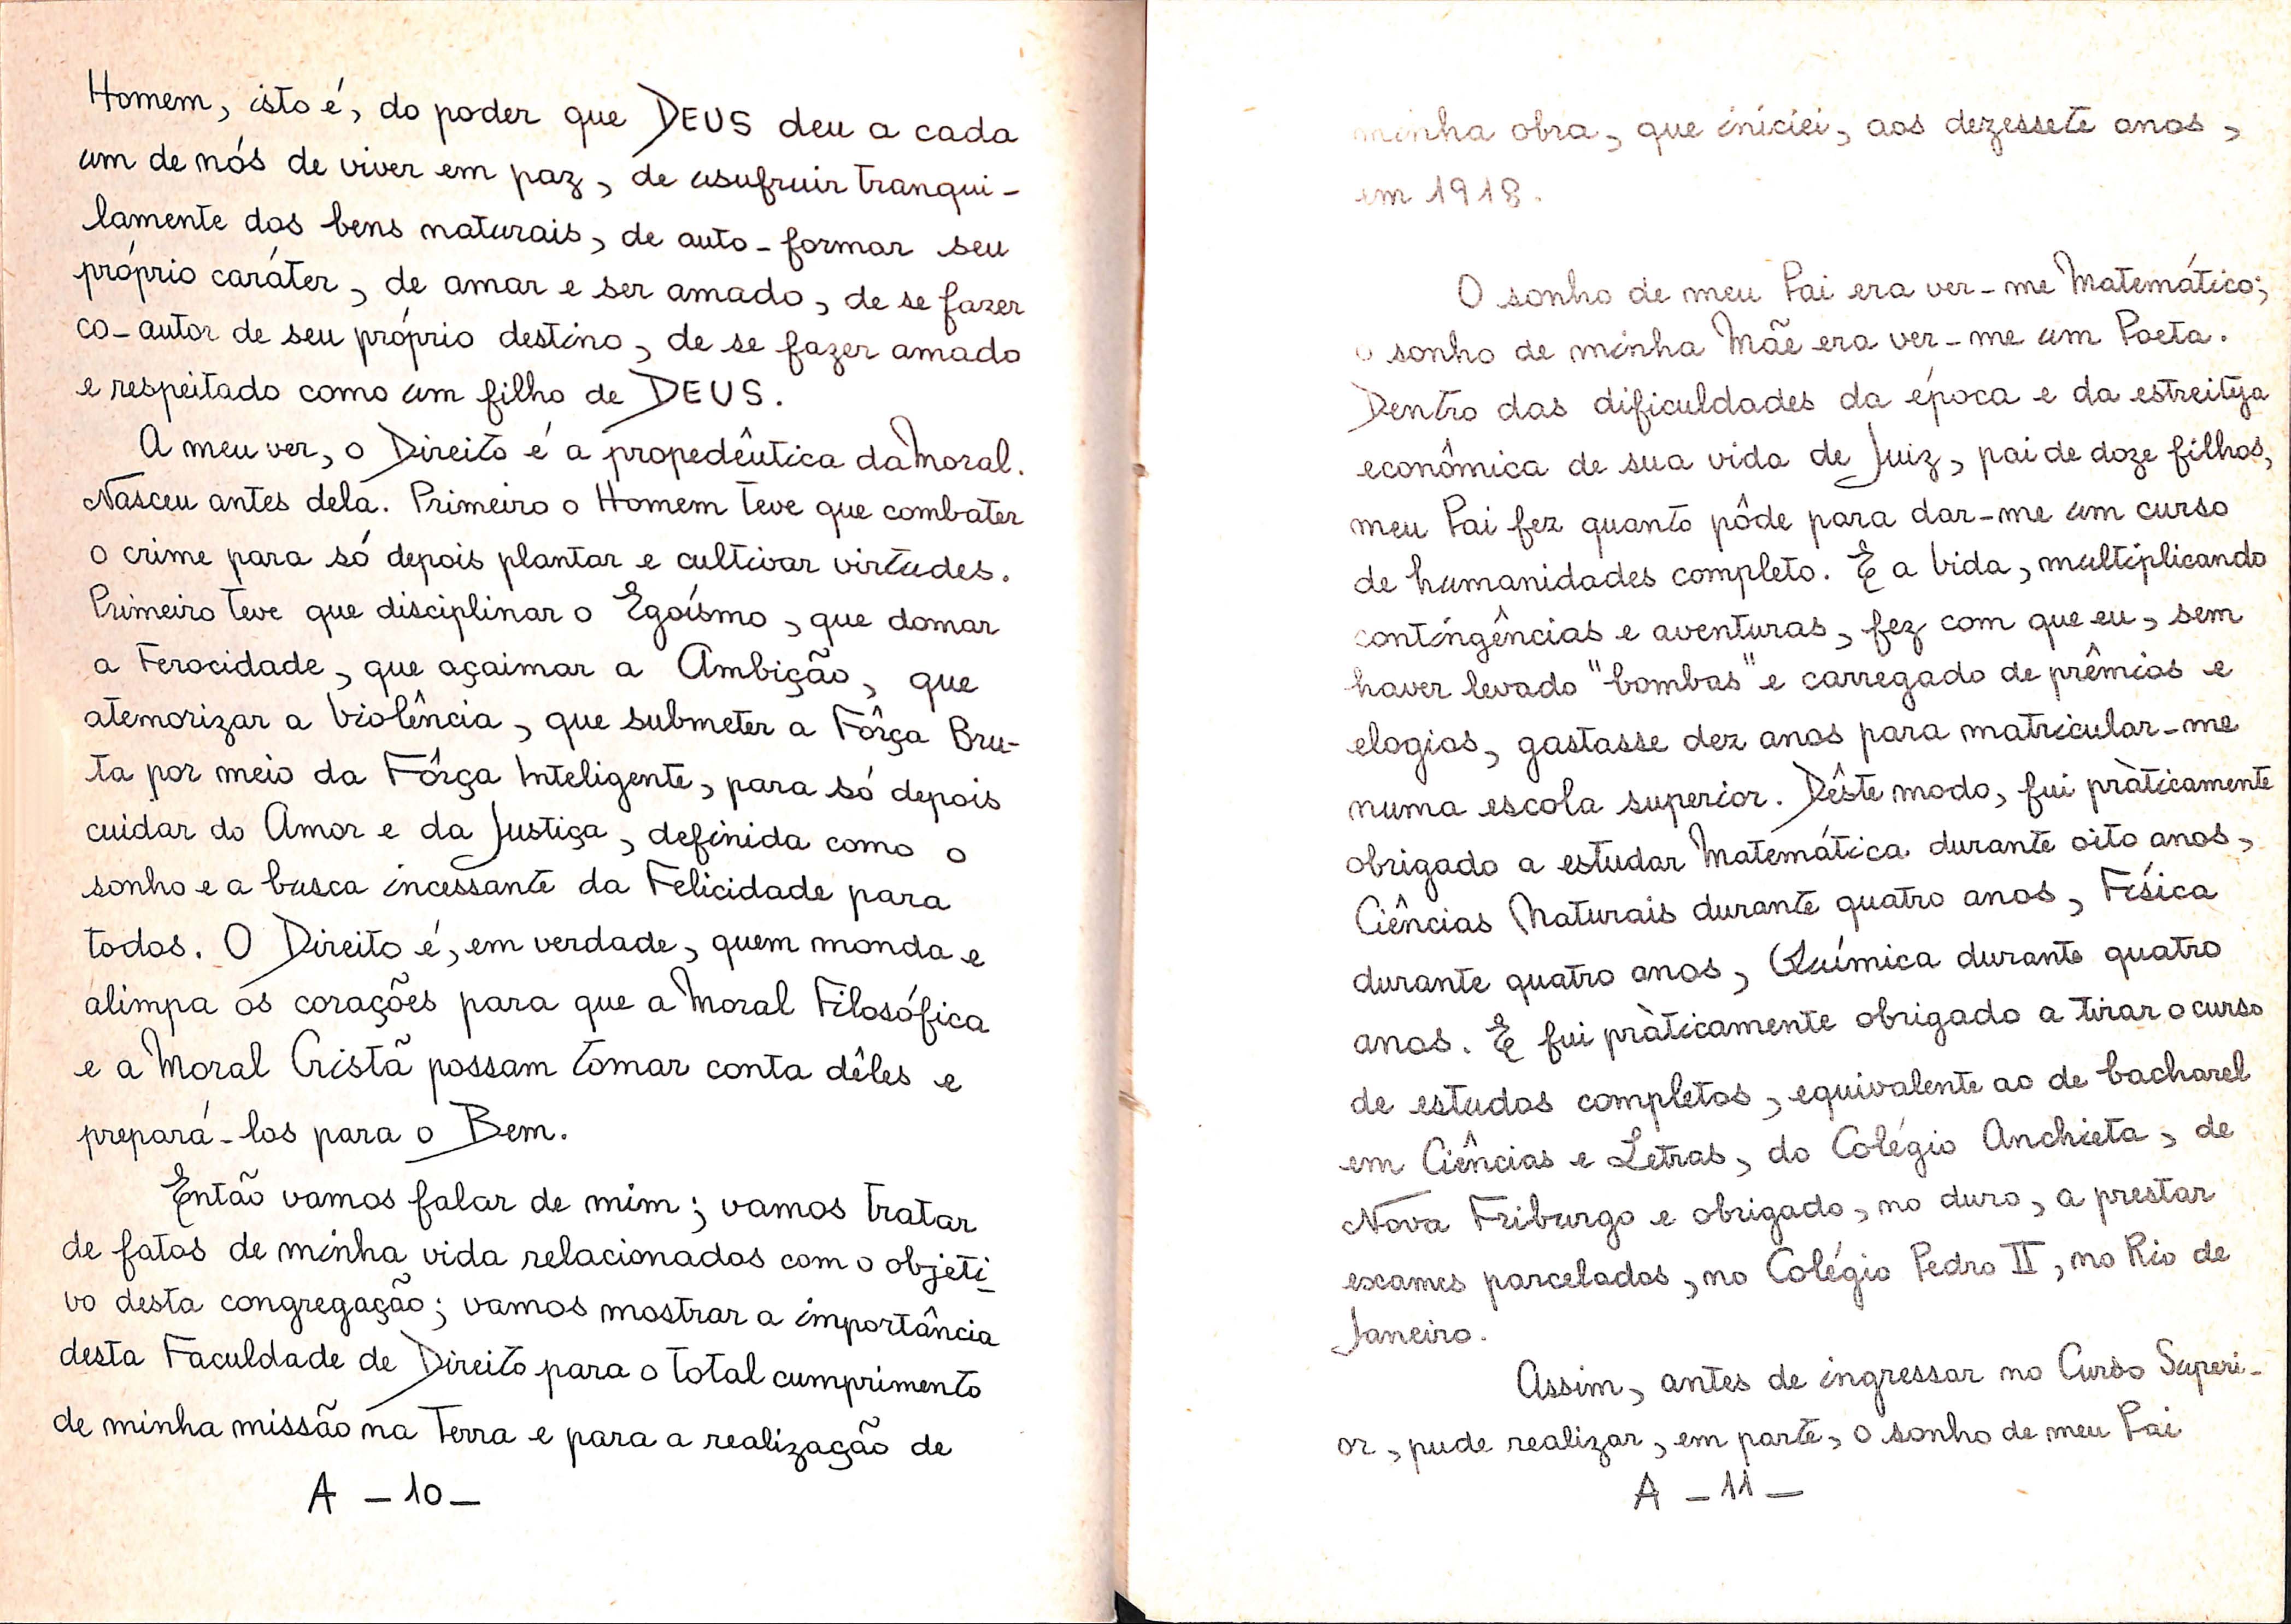 Homem, isto é, do poder que DEUS deu a cada
um de nós de viver em paz, de usufruir tranqui-
lamente dos bens naturais, de auto-formar seu
próprio caráter, de amar e ser amado, de se fazer
co-autor de seu próprio destino, de se fazer amado
e respeitado como um filho de DEUS.
A meu ver, o Direito é a propedêutica da Moral.
Nasceu antes dela. Primeiro o Homem teve que combater
o crime para só depois plantar e cultivar virtudes.
Primeiro teve que disciplinar o Egoísmo, que domar
a Ferocidade, que açaimar a Ambição, que
atemorizar a Violência, que submeter a Fôrça Bru-
ta por meio da Fôrça Inteligente, para só depois
cuidar do Amor e da Justiça, definida como o
sonho e a busca incessante da Felicidade para
todos. O Direito é, em verdade, quem monda e
alimpa os corações para que a Moral Filosófica
e a Moral Cristã possam tomar conta dêles e
prepará-los para o Bem.
Então vamos falar de mim; vamos tratar
de fatos de minha vida relacionados com o objeti-
vo desta congregação; vamos mostrar a importância
desta Faculdade de Direito para o total cumprimento
de minha missão na Terra e para a realização de
A - 10 -
minha obra, que iniciei, aos dezessete anos,
em 1918.
O sonho de meu Pai era ver-me Matemático;
o sonho de minha Mãe era ver-me um Poeta.
Dentro das dificuldades da época e da estreiteza
econômica de sua vida de Juiz, pai de doze filhos,
meu Pai fez quanto pôde para dar-me um curso
de humanidades completo. E a Vida, multiplicando
contingências e aventuras, fez com que eu, sem
haver levado "bombas" e carregado de prêmios e
elogios, gastasse dez anos para matricular-me
numa escola superior. Dêste modo, fui pràticamente
obrigado a estudar Matemática durante oito anos,
Ciências Naturais durante quatro anos, Física
durante quatro anos, Química durante quatro
anos. E fui pràticamente obrigado a tirar o curso
de estudos completos, equivalente ao de bacharel
em Ciências e Letras, do Colégio Anchieta, de
Nova Friburgo e obrigado, no duro, a prestar
exames parcelados, no Colégio Pedro II, no Rio de
Janeiro.
Assim, antes de ingressar no Curso Superi-
or, pude realizar, em parte, o sonho de meu Pai
A - 11 -